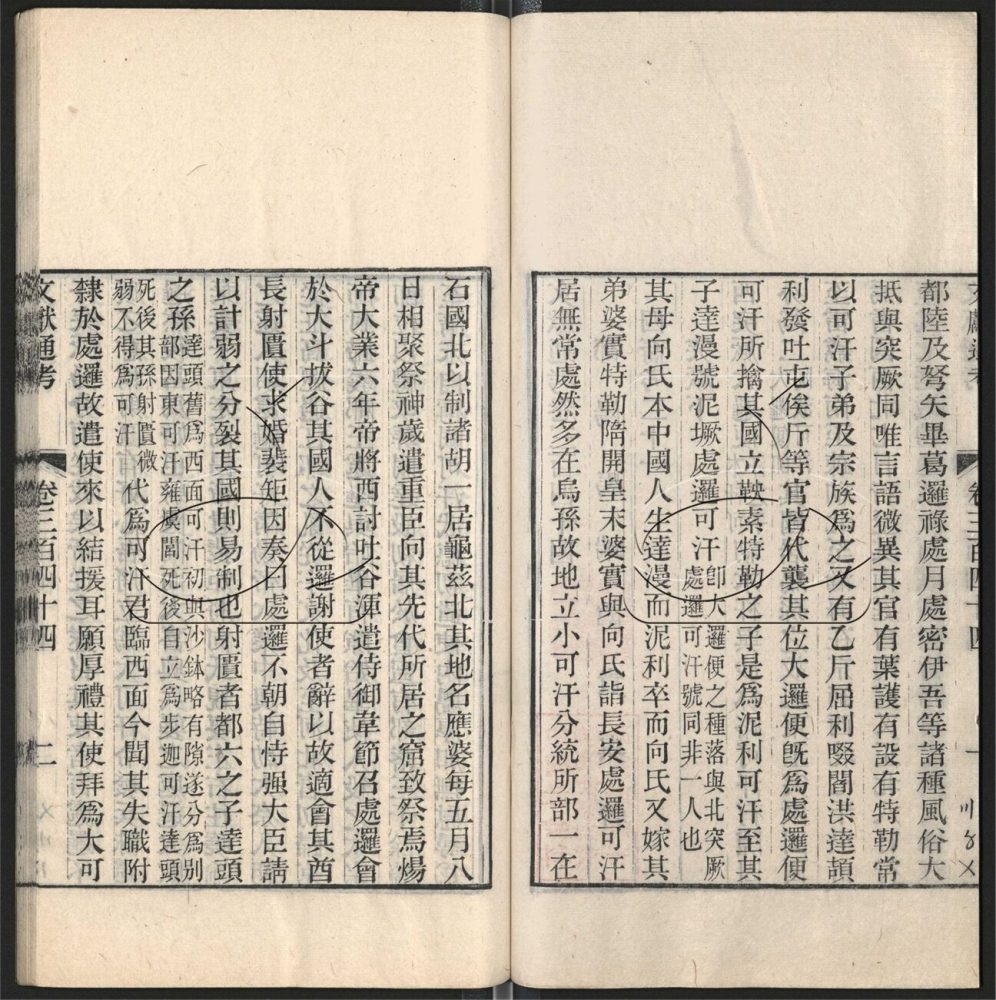 都陸及弩矢畢葛邏祿處月處密伊吾等諸種風俗大
抵與突厥同唯言語微異其官有葉護有設有特勒常
以可汗子弟及宗族為之又有乙斤屈利啜閻洪達頡
利發吐屯俟斤等官皆代襲其位大邏便旣為處邏便
可汗所擒其國立鞅素特勒之子是為泥利可汗至其
子達漫號泥撅處邏可汗卽大邏便之種落與北突厥處邏可汗號同非一人也
其母向氏本中國人生達漫而泥利卒而向氏又嫁其
弟婆實特勒隋開皇末婆實與向氏詣長安處邏可汗
居無常處然多在烏孫故地立小可汗分統所部一在
石國北以制諸胡一居龜茲北其地名應婆每五月八
日相聚祭神歲遣重臣向其先代所居之窟致祭焉煬
帝大業六年帝將西討吐谷渾遣侍御韋節召處邏會
於大斗拔谷其國人不從邏謝使者辭以故適會其酋
長射匱使求婚裴矩因奏曰處邏不朝自恃强大臣請
以計弱之分裂其國則易制也射匱者都六之子達頭
之孫達頭舊為西面可汗初與沙鉢略有隙遂分為別部因東可汗雍虞閭死後自立為步迦可汗達頭
死後其孫射匱微弱不得為可汗代為可汗君臨西面今聞其失職附
隸於處邏故遣使來以結援耳願厚禮其使拜為大可
文獻通考 卷三百四十四 二